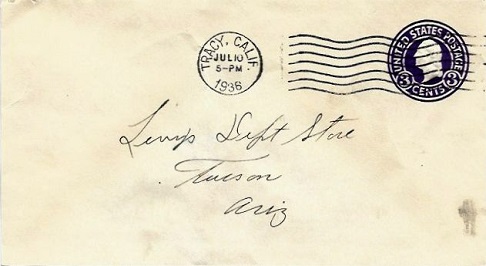 TRACY, CALIF.
JUL 10
5-PM
1936
UNITED STATES POSTAGE
3 CENTS 3
Levy's Dept Store
Tucson
Ariz